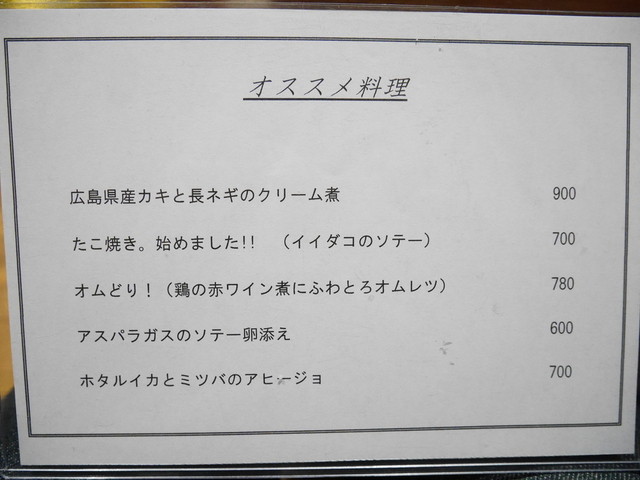 オススメ料理
広島県産カキと長ネギのクリーム煮 900
たこ焼き。始めました!! （イイダコのソテー） 700
オムどり！（鶏の赤ワイン煮にふわとろオムレツ） 780
アスパラガスのソテー卵添え 600
ホタルイカとミツバのアヒージョ 700